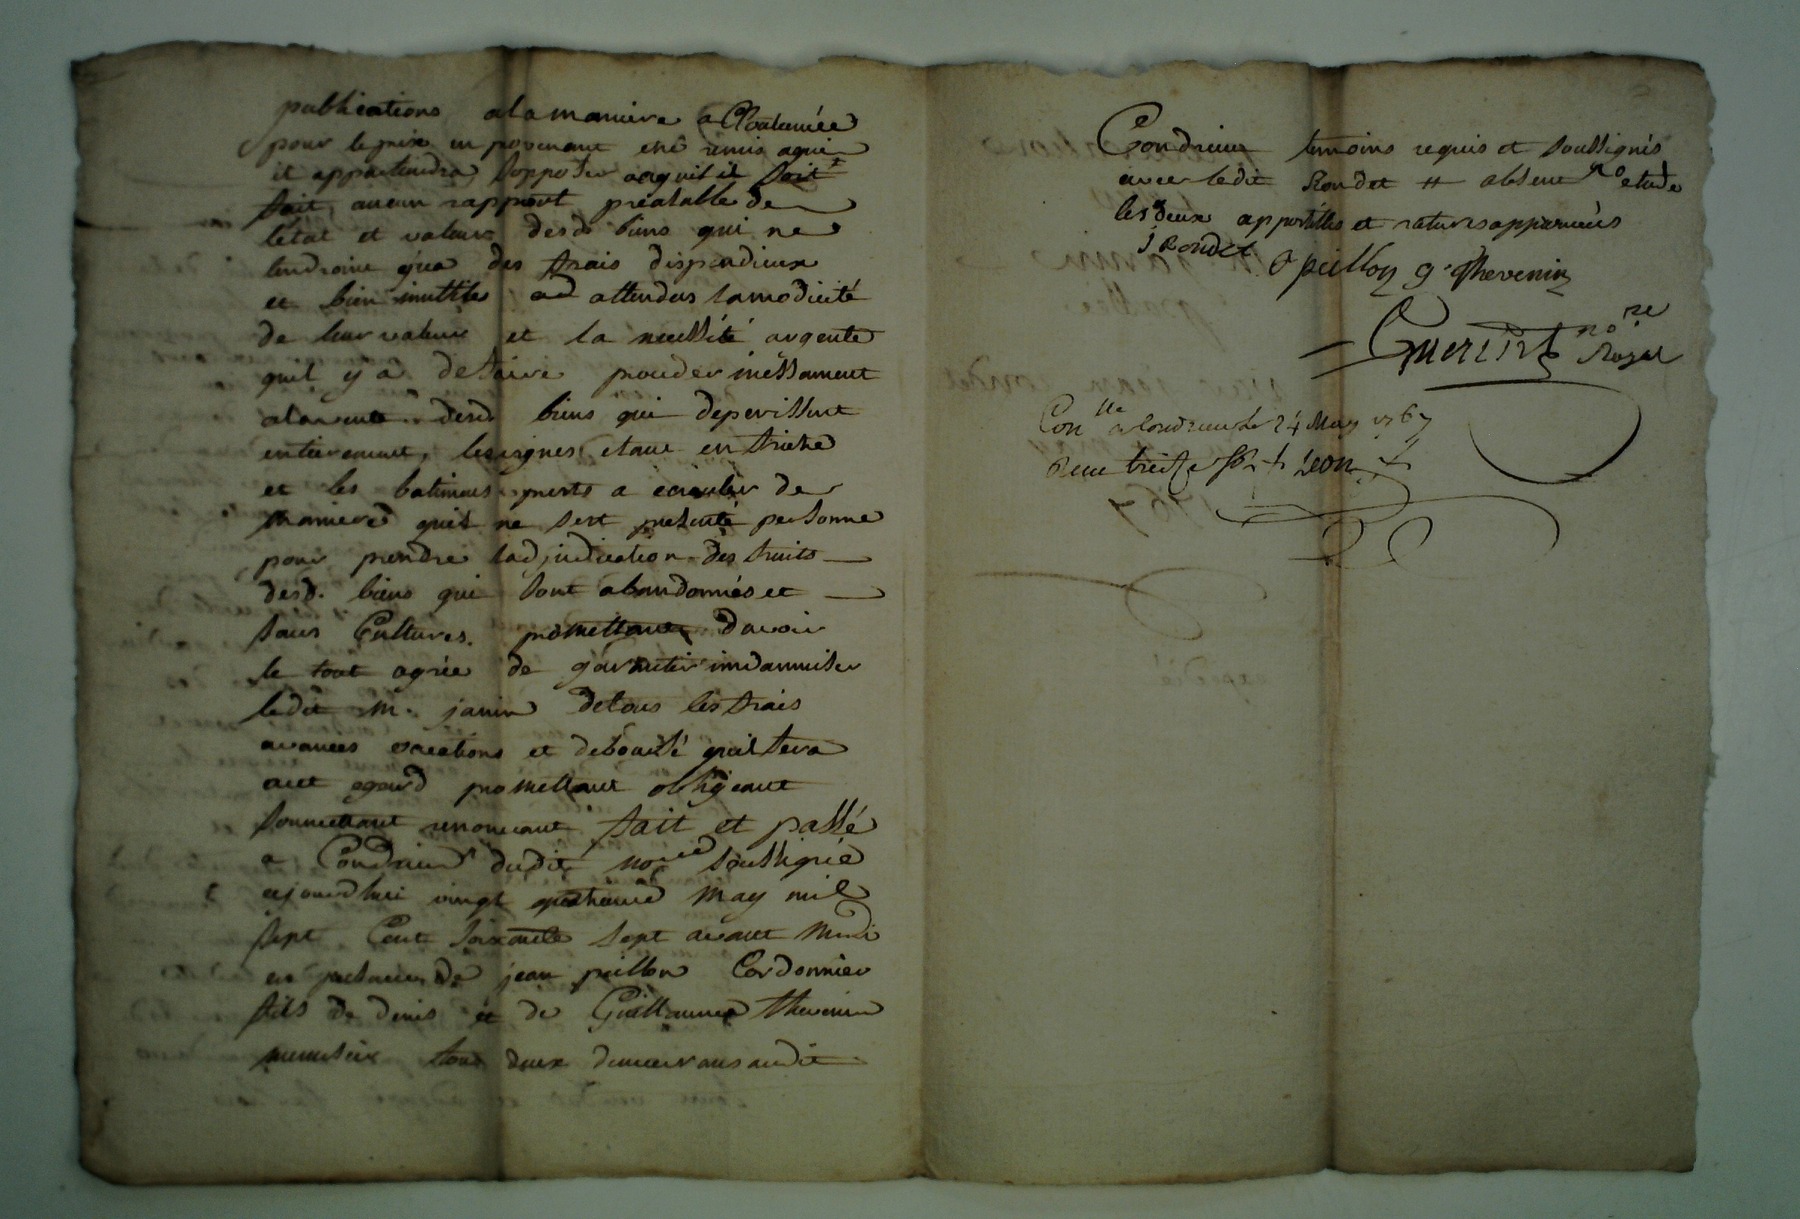 publications a la maniere acoutumée
pour le prix en provenant etre remis a qui
il appartiendra sopposer a cequil il soit
fait aucun rapport préalable de
letat et valeur desd. biens qui ne
tendroint qua des frais dispendieux
et bien inutiles attendus la modicité
de leur valeur et la necéssité urgente
quil y a de faire proceder incéssament
a la vente desd. biens qui deperissent
entierement, les vignes etant en friche
et les batimens prets a ecrouler de
maniere quil ne sest présenté personne
pour prendre ladjudication des fruits
desd. biens qui sont abandonnés et
sans Cultures. promettant davoir
le tout agrée de garantir indamniser
ledit m. janin de tous les frais
avances vacations et deboursé quil fera
a cet egard promettant obligeant
soumettant renonceant fait et passé
a Condrieu dudit nore soussigné
aujourdhui vingt quatrieme may mil
sept Cent soixante sept avant midi
en presence de jean peillon Cordonnier
fils de denis et de Guillaume thevenin
menusier tous deux demeurans audit
Condrieu temoins requis et soussignés
avec ledit Rondet # absent etude
les deux appostilles et ratures approuvées
J Rondet J peillon g. thevenin
Guerin nore
Royal
Conlle a Condrieu le 24 May 1767
Reçu treize s. Leon